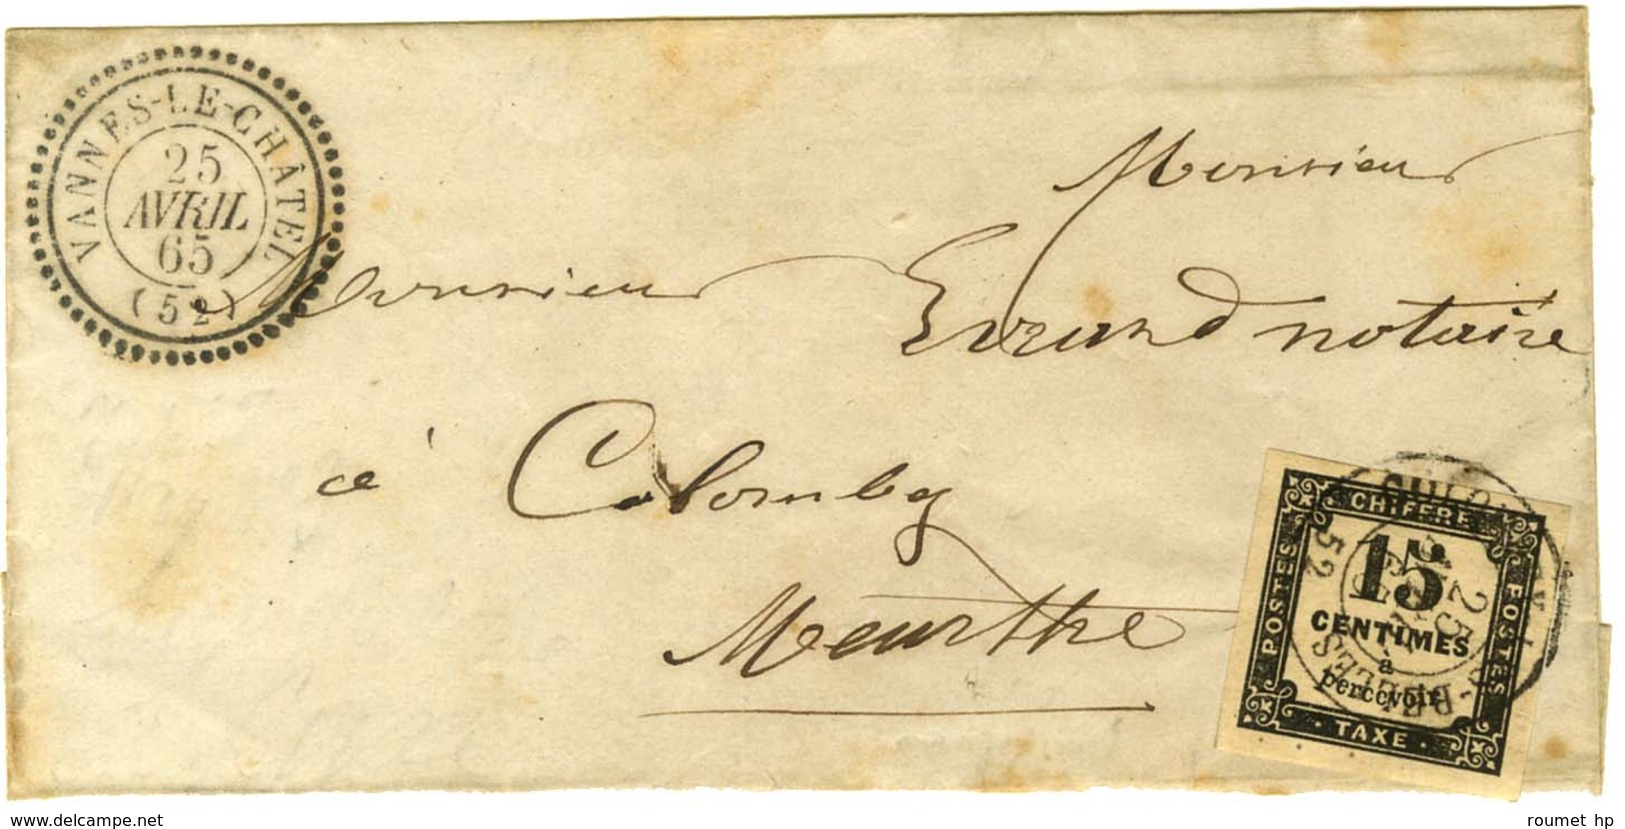 VANNES-LE-CHÂTEL
25
AVRIL
65
(52)
Monsieur
Monsieur
Evrard notaire
à Colombey
Meurthe
CHIFFRE
POSTES
POSTES
15
CENTIMES
à
percevoir
TAXE
COLOMBEY-L-BELLES
25
52
www.delcampe.net
roumet hp